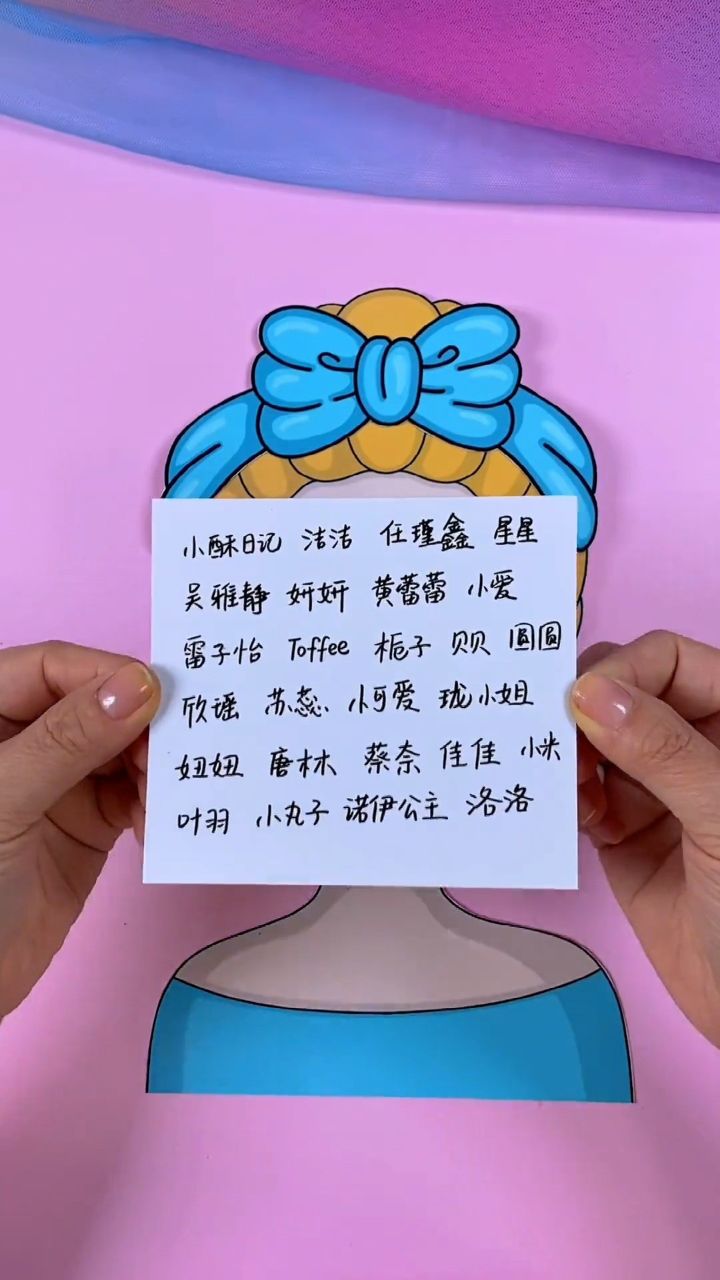 小酥日记 洁洁 任瑾鑫 星星
吴雅静 妍妍 黄蕾蕾 小爱
雷子怡 Toffee 栀子 贝贝 圆圆
欣瑶 苏蕊 小可爱 珑小姐
妞妞 唐林 蔡奈 佳佳 小米
叶羽 小丸子 诺伊公主 洛洛